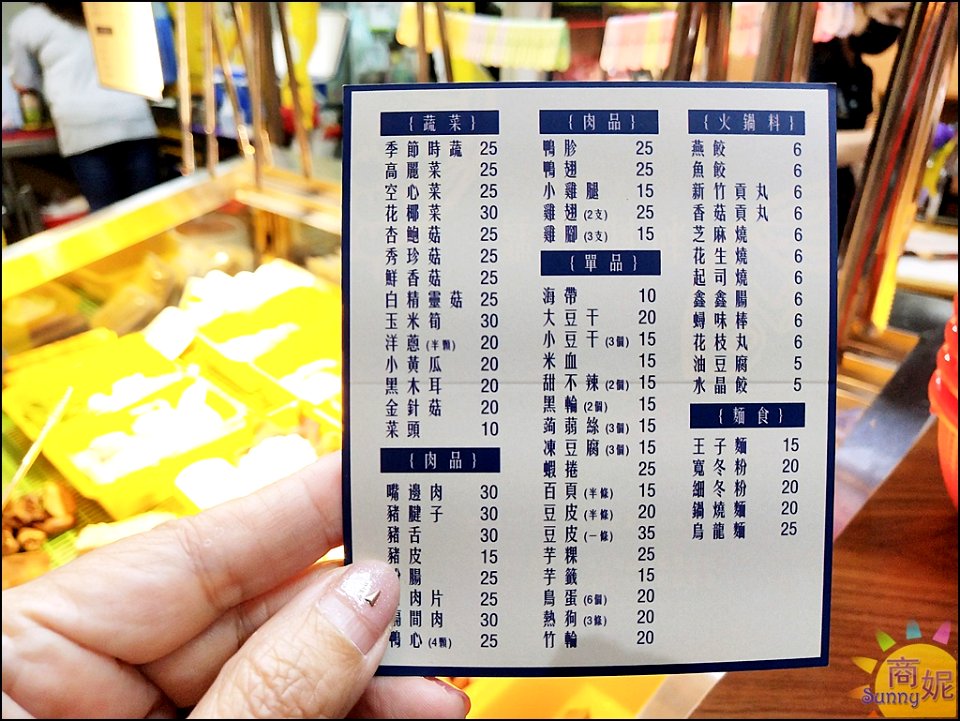 { 蔬菜 }
季節時蔬 25
高麗菜 25
空心菜 25
花椰菜 30
杏鮑菇 25
秀珍菇 25
鮮香菇 25
白精靈菇 25
玉米筍 30
洋蔥(半顆) 20
小黃瓜 20
黑木耳 20
金針菇 20
菜頭 10
{ 肉品 }
嘴邊肉 30
豬腱子 30
豬舌 30
豬皮 15
腸 25
肉片 25
間肉 30
鴨心(4顆) 25
{ 肉品 }
鴨胗 25
鴨翅 25
小雞腿 15
雞翅(2支) 25
雞腳(3支) 15
{ 單品 }
海帶 10
大豆干 20
小豆干(3個) 15
米血 15
甜不辣(2個) 15
黑輪(2個) 15
蒟蒻絲(3個) 15
凍豆腐(3個) 15
蝦捲 25
百頁(半條) 15
豆皮(半條) 20
豆皮(一條) 35
芋粿 25
芋籤 15
鳥蛋(6個) 20
熱狗(3條) 20
竹輪 20
{ 火鍋料 }
燕餃 6
魚餃 6
新竹貢丸 6
香菇貢丸 6
芝麻燒 6
花生燒 6
起司燒 6
鑫鑫腸 6
蟳味棒 6
花枝丸 6
油豆腐 5
水晶餃 5
{ 麵食 }
王子麵 15
寬冬粉 20
細冬粉 20
鍋燒麵 20
烏龍麵 25
商妮
Sunny